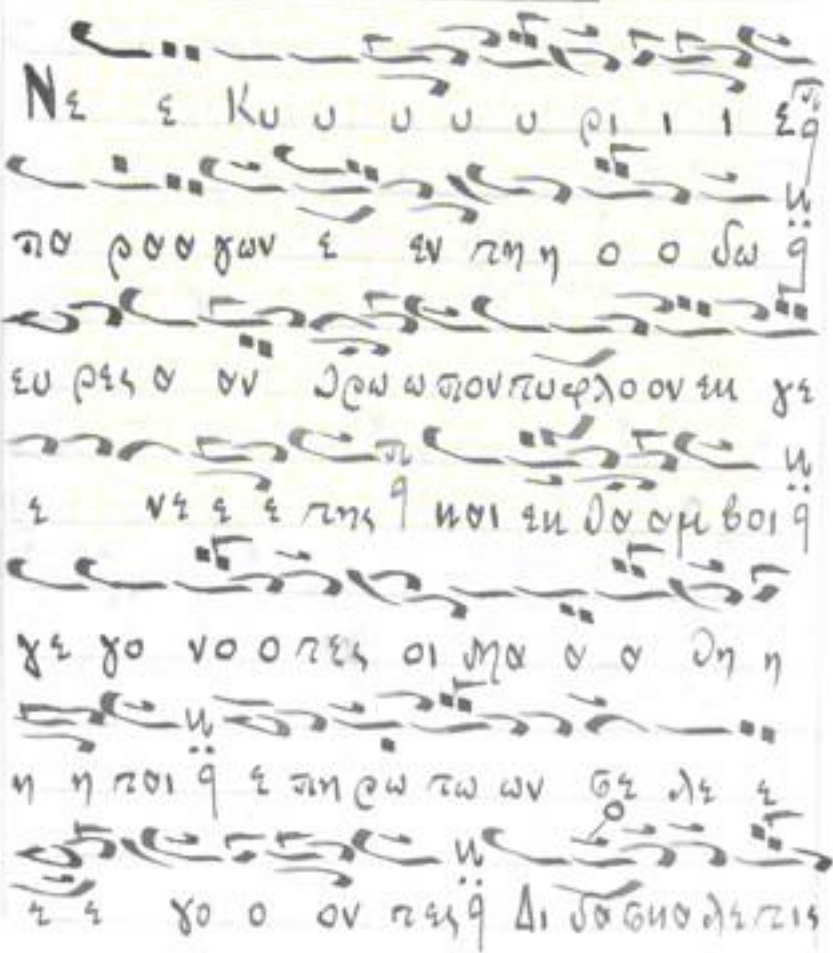 Νε ε Κυ υ υ υ υ ρι ι ι ι ε
πα ρα α α γων ε εν τη η ο ο δω
ευ ρες α αν θρω ω πον τυ φλο ον εκ γε
ε νε ε ε της και εκ θα αμ βοι
γε γο νο ο τες οι Μα α α θη η
η η ται ε πη ρω τω ων σε λε ε
ε ε γο ο ον τες Δι δα σκα λε τις